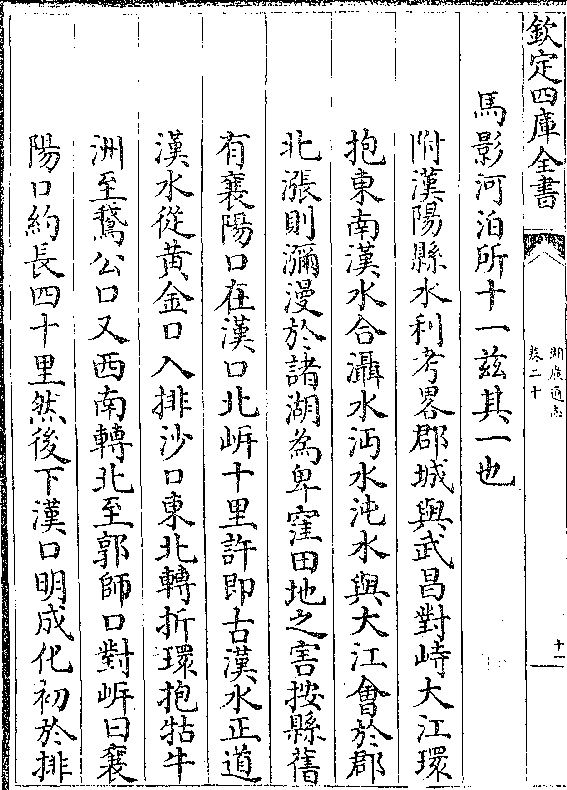 欽定四庫全書
湖廣通志
卷二十
十一
馬影河泊所十一兹其一也
附漢陽縣水利考畧郡城與武昌對峙大江環
抱東南漢水合灄水沔水沌水與大江會於郡
北漲則瀰漫於諸湖為卑窪田地之害按縣舊
有襄陽口在漢口北岍十里許即古漢水正道
漢水從黄金口入排沙口東北轉折環抱牯牛
洲至鵞公口又西南轉北至郭師口對岍曰襄
陽口約長四十里然後下漢口明成化初於排